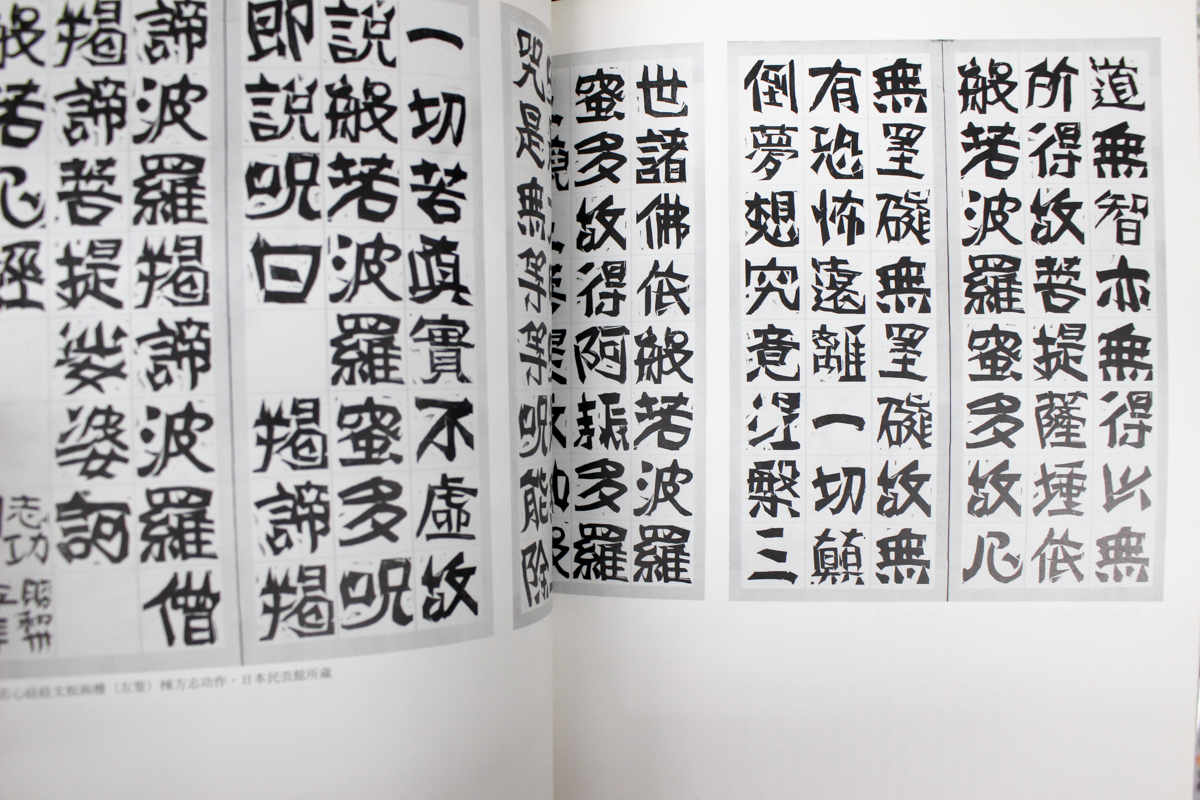 道無智亦無得以無
所得故菩提薩埵依
般若波羅蜜多故心
無罣礙無罣礙故無
有恐怖遠離一切顛
倒夢想究竟涅槃三
世諸佛依般若波羅
蜜多故得阿耨多羅
呪是無等等呪能除
一切苦眞實不虛故
説般若波羅蜜多呪
即説呪曰 羯諦羯
諦波羅羯諦波羅僧
羯諦菩提娑婆訶
般若心經
志功
昭和卅
（左隻）棟方志功作・日本民芸館所蔵